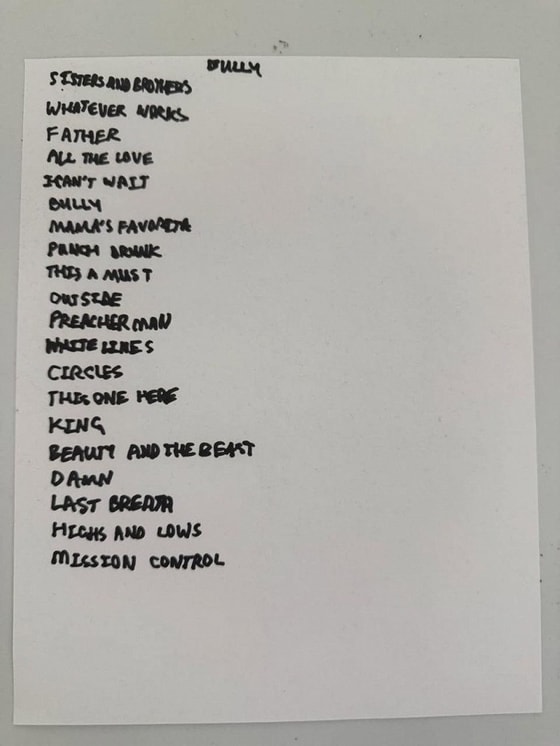 BULLY
SISTERS AND BROTHERS
WHATEVER WORKS
FATHER
ALL THE LOVE
I CAN'T WAIT
BULLY
MAMA'S FAVORITE
PUNCH DRUNK
THIS A MUST
OUTSIDE
PREACHER MAN
WHITE LINES
CIRCLES
THIS ONE HERE
KING
BEAUTY AND THE BEAST
DAMN
LAST BREATH
HIGHS AND LOWS
MISSION CONTROL